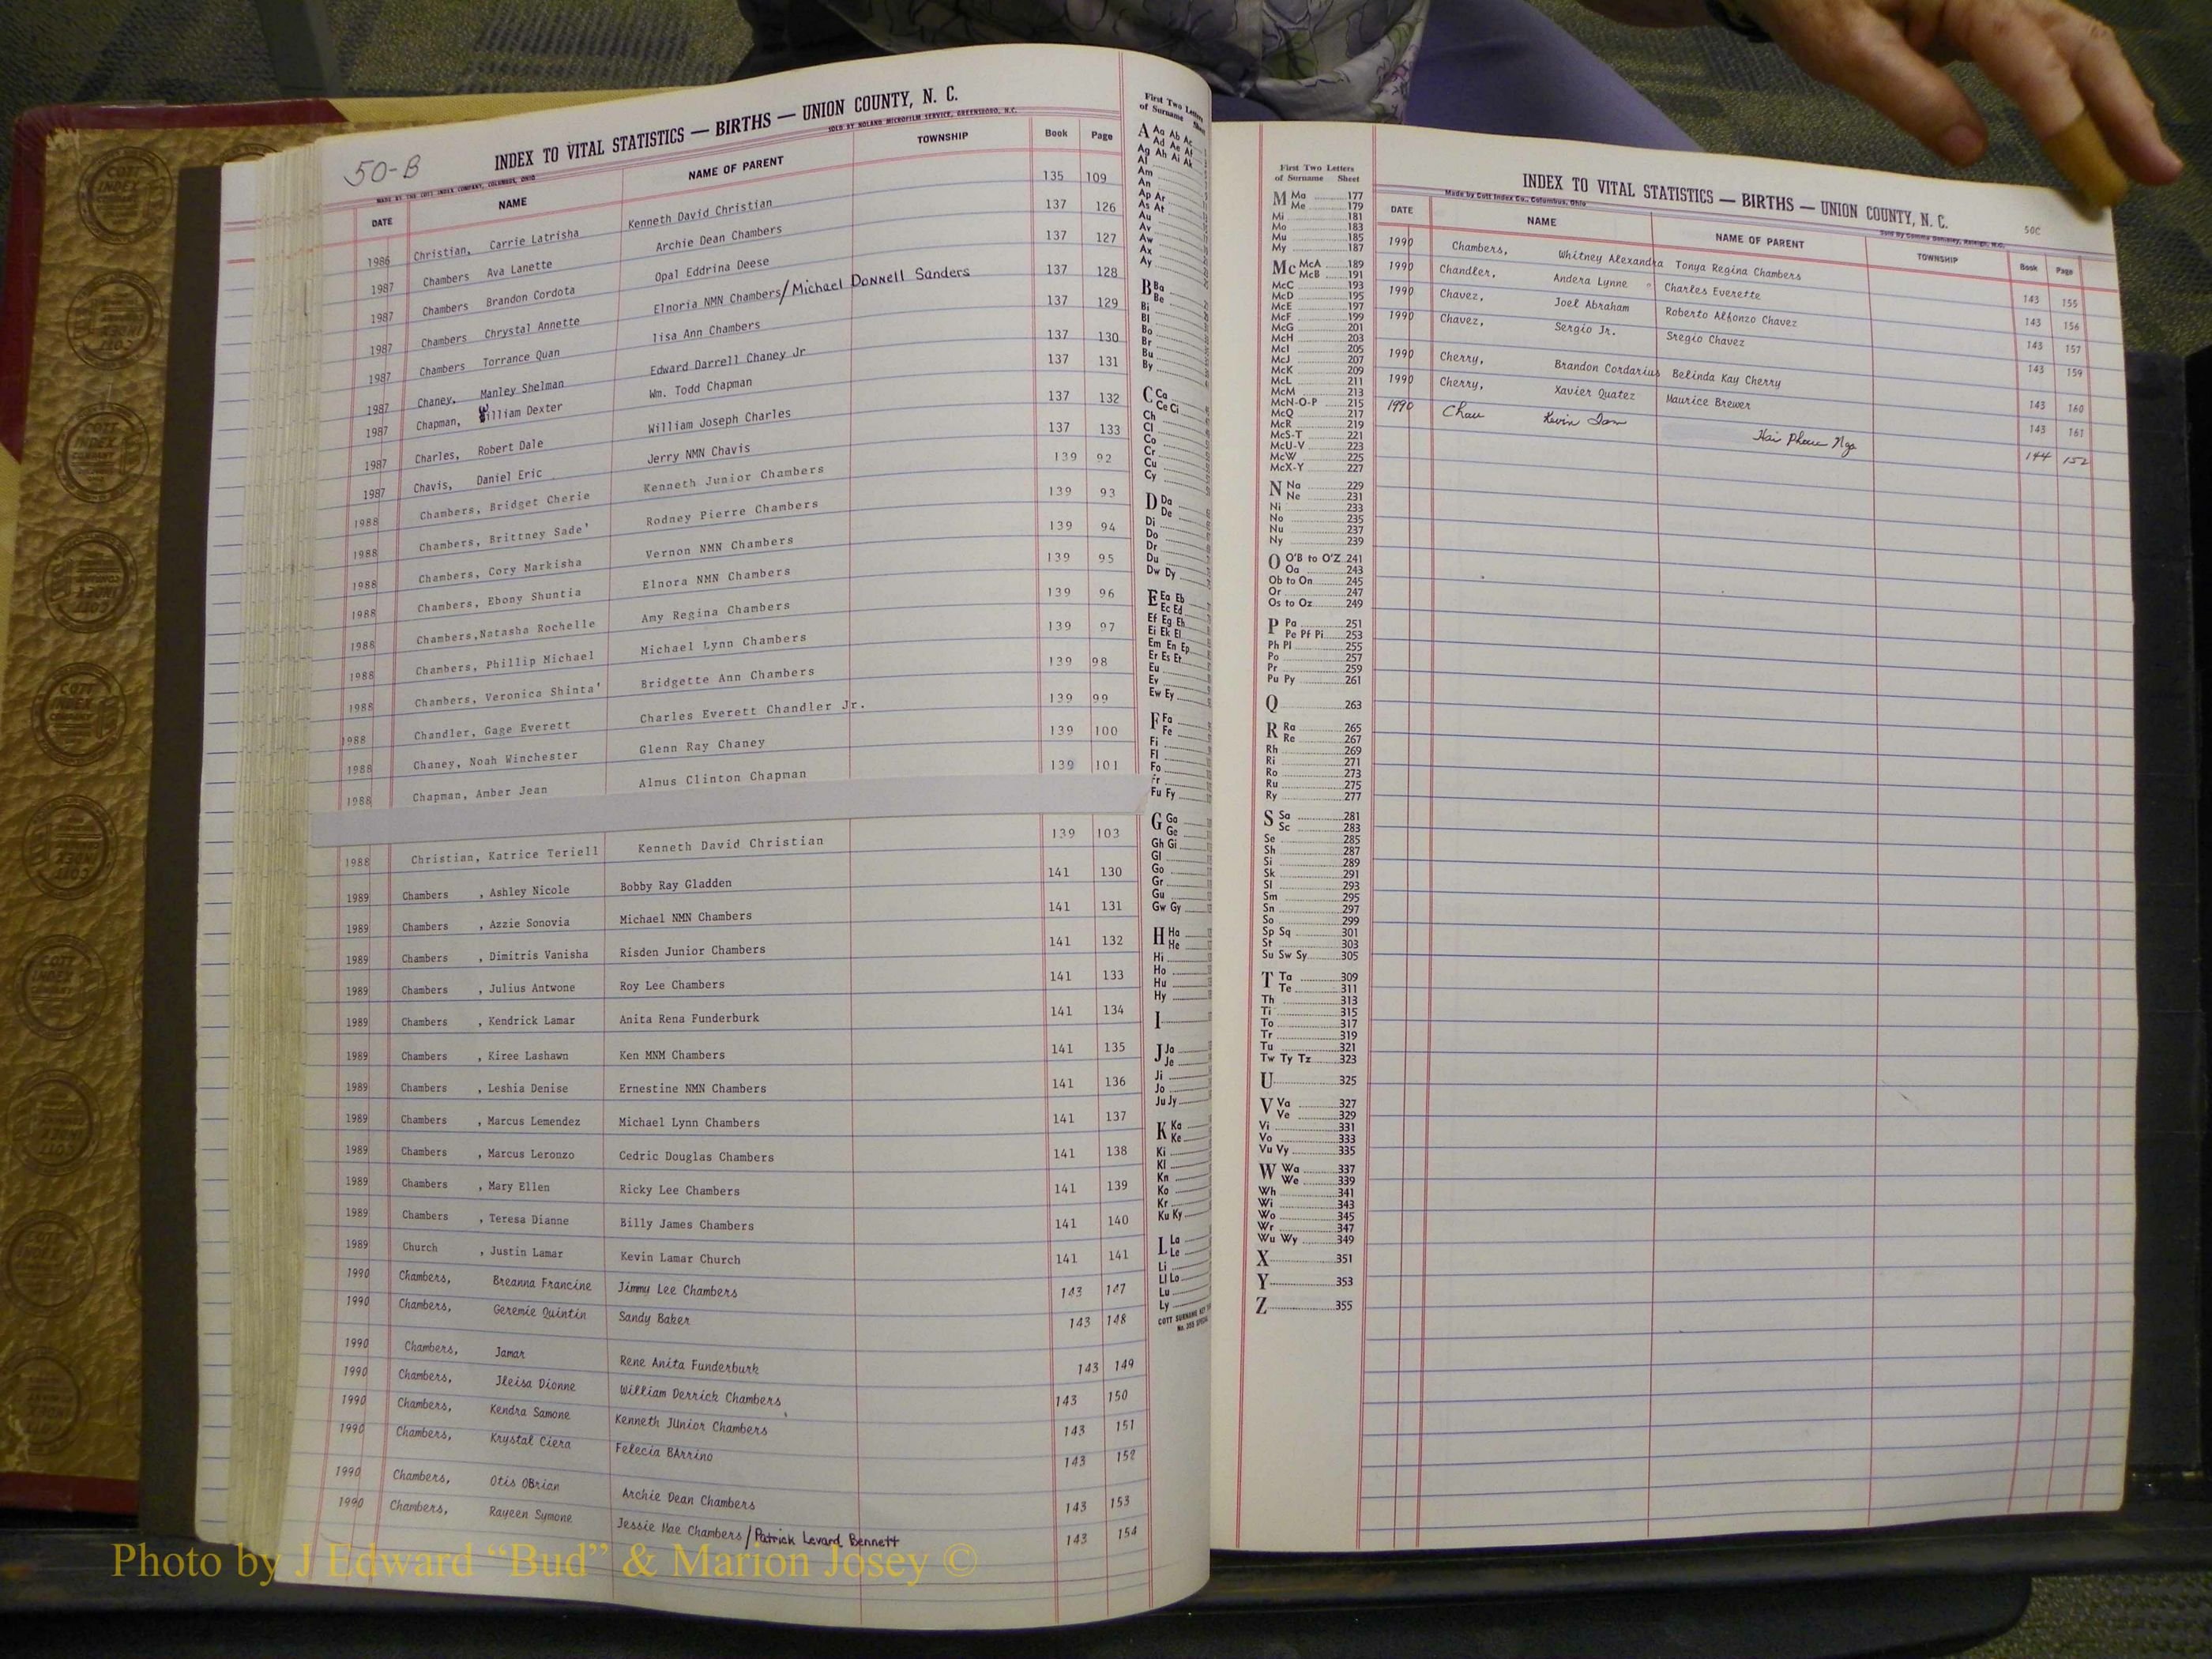 50-B
INDEX TO VITAL STATISTICS — BIRTHS — UNION COUNTY, N. C.
MADE BY THE COTT INDEX COMPANY, COLUMBUS, OHIO SOLD BY NOLAND MICROFILM SERVICE, GREENSBORO, N.C.
DATE NAME NAME OF PARENT TOWNSHIP Book Page
1986 Christian, Carrie Latrisha Kenneth David Christian 135 109
1987 Chambers Ava Lanette Archie Dean Chambers 137 126
1987 Chambers Brandon Cordota Opal Eddrina Deese 137 127
1987 Chambers Chrystal Annette Elnoria NMN Chambers/Michael Donnell Sanders 137 128
1987 Chambers Torrance Quan lisa Ann Chambers 137 129
1987 Chaney, Manley Shelman Edward Darrell Chaney Jr 137 130
1987 Chapman, William Dexter Wm. Todd Chapman 137 131
1987 Charles, Robert Dale William Joseph Charles 137 132
1987 Chavis, Daniel Eric Jerry NMN Chavis 137 133
1988 Chambers, Bridget Cherie Kenneth Junior Chambers 139 92
1988 Chambers, Brittney Sade' Rodney Pierre Chambers 139 93
1988 Chambers, Cory Markisha Vernon NMN Chambers 139 94
1988 Chambers, Ebony Shuntia Elnora NMN Chambers 139 95
1988 Chambers,Natasha Rochelle Amy Regina Chambers 139 96
1988 Chambers, Phillip Michael Michael Lynn Chambers 139 97
1988 Chambers, Veronica Shinta' Bridgette Ann Chambers 139 98
1988 Chandler, Gage Everett Charles Everett Chandler Jr. 139 99
1988 Chaney, Noah Winchester Glenn Ray Chaney 139 100
1988 Chapman, Amber Jean Almus Clinton Chapman 139 101
1988 Christian, Katrice Teriell Kenneth David Christian 139 103
1989 Chambers , Ashley Nicole Bobby Ray Gladden 141 130
1989 Chambers , Azzie Sonovia Michael NMN Chambers 141 131
1989 Chambers , Dimitris Vanisha Risden Junior Chambers 141 132
1989 Chambers , Julius Antwone Roy Lee Chambers 141 133
1989 Chambers , Kendrick Lamar Anita Rena Funderburk 141 134
1989 Chambers , Kiree Lashawn Ken MNM Chambers 141 135
1989 Chambers , Leshia Denise Ernestine NMN Chambers 141 136
1989 Chambers , Marcus Lemendez Michael Lynn Chambers 141 137
1989 Chambers , Marcus Leronzo Cedric Douglas Chambers 141 138
1989 Chambers , Mary Ellen Ricky Lee Chambers 141 139
1989 Chambers , Teresa Dianne Billy James Chambers 141 140
1989 Church , Justin Lamar Kevin Lamar Church 141 141
1990 Chambers, Breanna Francine Jimmy Lee Chambers 143 147
1990 Chambers, Geremie Quintin Sandy Baker 143 148
1990 Chambers, Jamar Rene Anita Funderburk 143 149
1990 Chambers, Jleisa Dionne William Derrick Chambers 143 150
1990 Chambers, Kendra Samone Kenneth JUnior Chambers 143 151
1990 Chambers, Krystal Ciera Felecia BArrino 143 152
1990 Chambers, Otis OBrian Archie Dean Chambers 143 153
1990 Chambers, Rayeen Symone Jessie Mae Chambers/Patrick Levard Bennett 143 154
First Two Letters
of Surname Sheet
A Aa Ab Ac
Ad Ae Af
Ag Ah Ai Ak
Al
Am
An
Ap Ar
As At
Au
Av
Aw
Ax
Ay
B Ba
Be
Bi
Bl
Bo
Br
Bu
By
C Ca
Ce Ci
Ch
Cl
Co
Cr
Cu
Cy
D Da
De
Di
Do
Dr
Du
Dw Dy
E Ea Eb
Ec Ed
Ef Eg Eh
Ei Ek El
Em En Ep
Er Es Et
Eu
Ev
Ew Ey
F Fa
Fe
Fi
Fl
Fo
Fr
Fu Fy
G Ga
Ge
Gh Gi
Gl
Go
Gr
Gu
Gw Gy
H Ha
He
Hi
Ho
Hu
Hy
I
J Ja
Je
Ji
Jo
Ju Jy
K Ka
Ke
Ki
Kl
Kn
Ko
Kr
Ku Ky
L La
Le
Li
Ll Lo
Lu
Ly
First Two Letters
of Surname Sheet
M Ma 177
Me 179
Mi 181
Mo 183
Mu 185
My 187
Mc McA 189
McB 191
McC 193
McD 195
McE 197
McF 199
McG 201
McH 203
McI 205
McJ 207
McK 209
McL 211
McM 213
McN-O-P 215
McQ 217
McR 219
McS-T 221
McU-V 223
McW 225
McX-Y 227
N Na 229
Ne 231
Ni 233
No 235
Nu 237
Ny 239
O O'B to O'Z 241
Oa 243
Ob to On 245
Or 247
Os to Oz 249
P Pa 251
Pe Pf Pi 253
Ph Pl 255
Po 257
Pr 259
Pu Py 261
Q 263
R Ra 265
Re 267
Rh 269
Ri 271
Ro 273
Ru 275
Ry 277
S Sa 281
Sc 283
Se 285
Sh 287
Si 289
Sk 291
Sl 293
Sm 295
Sn 297
So 299
Sp Sq 301
St 303
Su Sw Sy 305
T Ta 309
Te 311
Th 313
Ti 315
To 317
Tr 319
Tu 321
Tw Ty Tz 323
U 325
V Va 327
Ve 329
Vi 331
Vo 333
Vu Vy 335
W Wa 337
We 339
Wh 341
Wi 343
Wo 345
Wr 347
Wu Wy 349
X 351
Y 353
Z 355
INDEX TO VITAL STATISTICS — BIRTHS — UNION COUNTY, N. C. 50C
Made by Cott Index Co., Columbus, Ohio
DATE NAME NAME OF PARENT TOWNSHIP Book Page
1990 Chambers, Whitney Alexandra Tonya Regina Chambers 143 155
1990 Chandler, Andera Lynne Charles Everette 143 156
1990 Chavez, Joel Abraham Roberto Alfonzo Chavez 143 157
1990 Chavez, Sergio Jr. Sregio Chavez 143 159
1990 Cherry, Brandon Cordarius Belinda Kay Cherry 143 160
1990 Cherry, Xavier Quatez Maurice Brewer 143 161
1990 Chau Kevin Tam Hai 144 152
Photo by J Edward “Bud” & Marion Josey ©